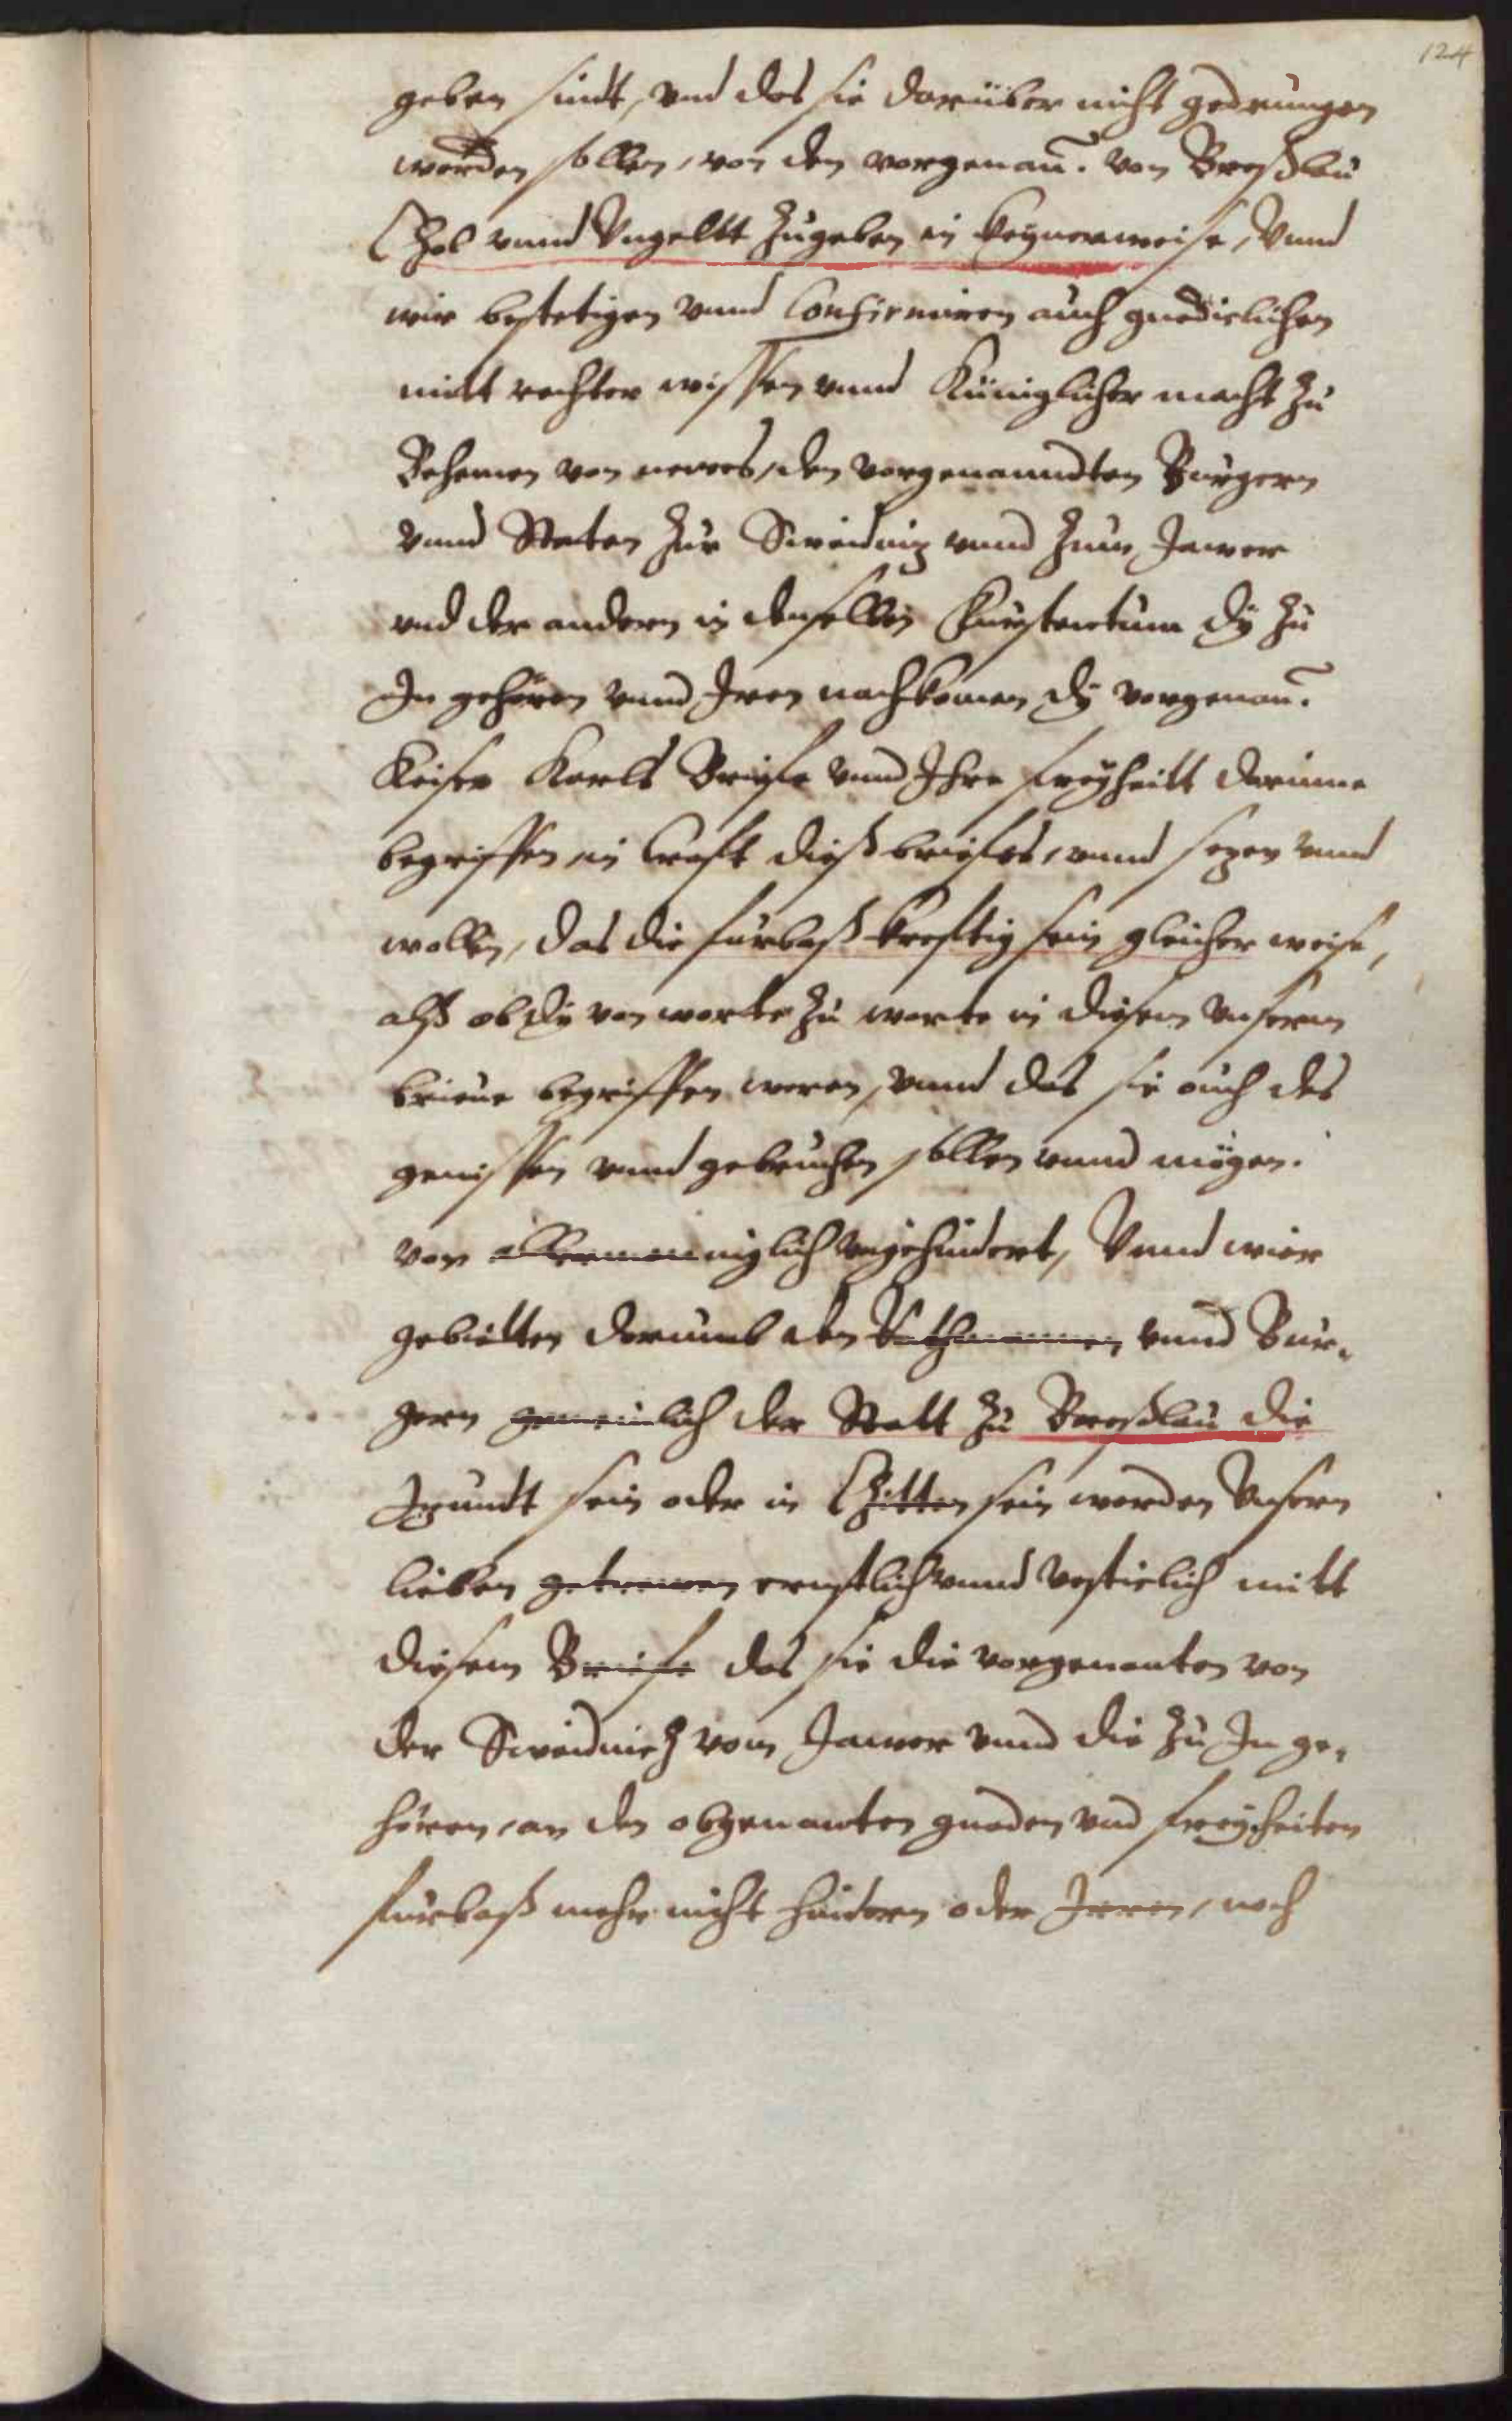 124
geben sindt, vnd das sie darüber nicht gedrungen
werden sollen, von den vorgenan̄. von Breßlau
Czol vnnd Vngeltt zugeben in keynerweise, Vnnd
wir bestetigen vnnd Confirmiren auch gnediclichen
mitt rechter wissen vnnd Küniglicher macht zu
Behemen von newes, den vorgenanndten Burgern
vnnd Steten zur Sweidniz vnnd zum Jawer
vnd der andern in denselben Fürstentum dy zu
In gehören vnnd Iren nachkomen dy vorgenan̄.
Keiser Karls Briefe vnnd Ihre freyheitt darinne
begriffen in Craft dieß briefes, vnnd sezen vnnd
wollen, das die fürbaß kreftig sein gleicher weise,
alß ob dy von worte zu worte in diesem vnserm
brieue begriffen weren, vnnd das sie auch des
genissen vnnd gebruchen sollen vnnd mögen.
von allermenniglich vngehindert, Vnnd wier
gebietten darumb den Rathmannen vnnd Bur-
gern gemeinlich der Statt zu Breßlau die
Izundt sein oder in Czitten sein werden Vnsern
lieben getrewen ernstlich vnnd vestielich mitt
diesem Briefe das sie die vorgenanten von
der Sweidnicz vom Jawer vnnd die zu In ge-
hören, an den obgenanten gnaden vnd freyheiten
fürbaß mehr nicht hindern oder Irren, noch